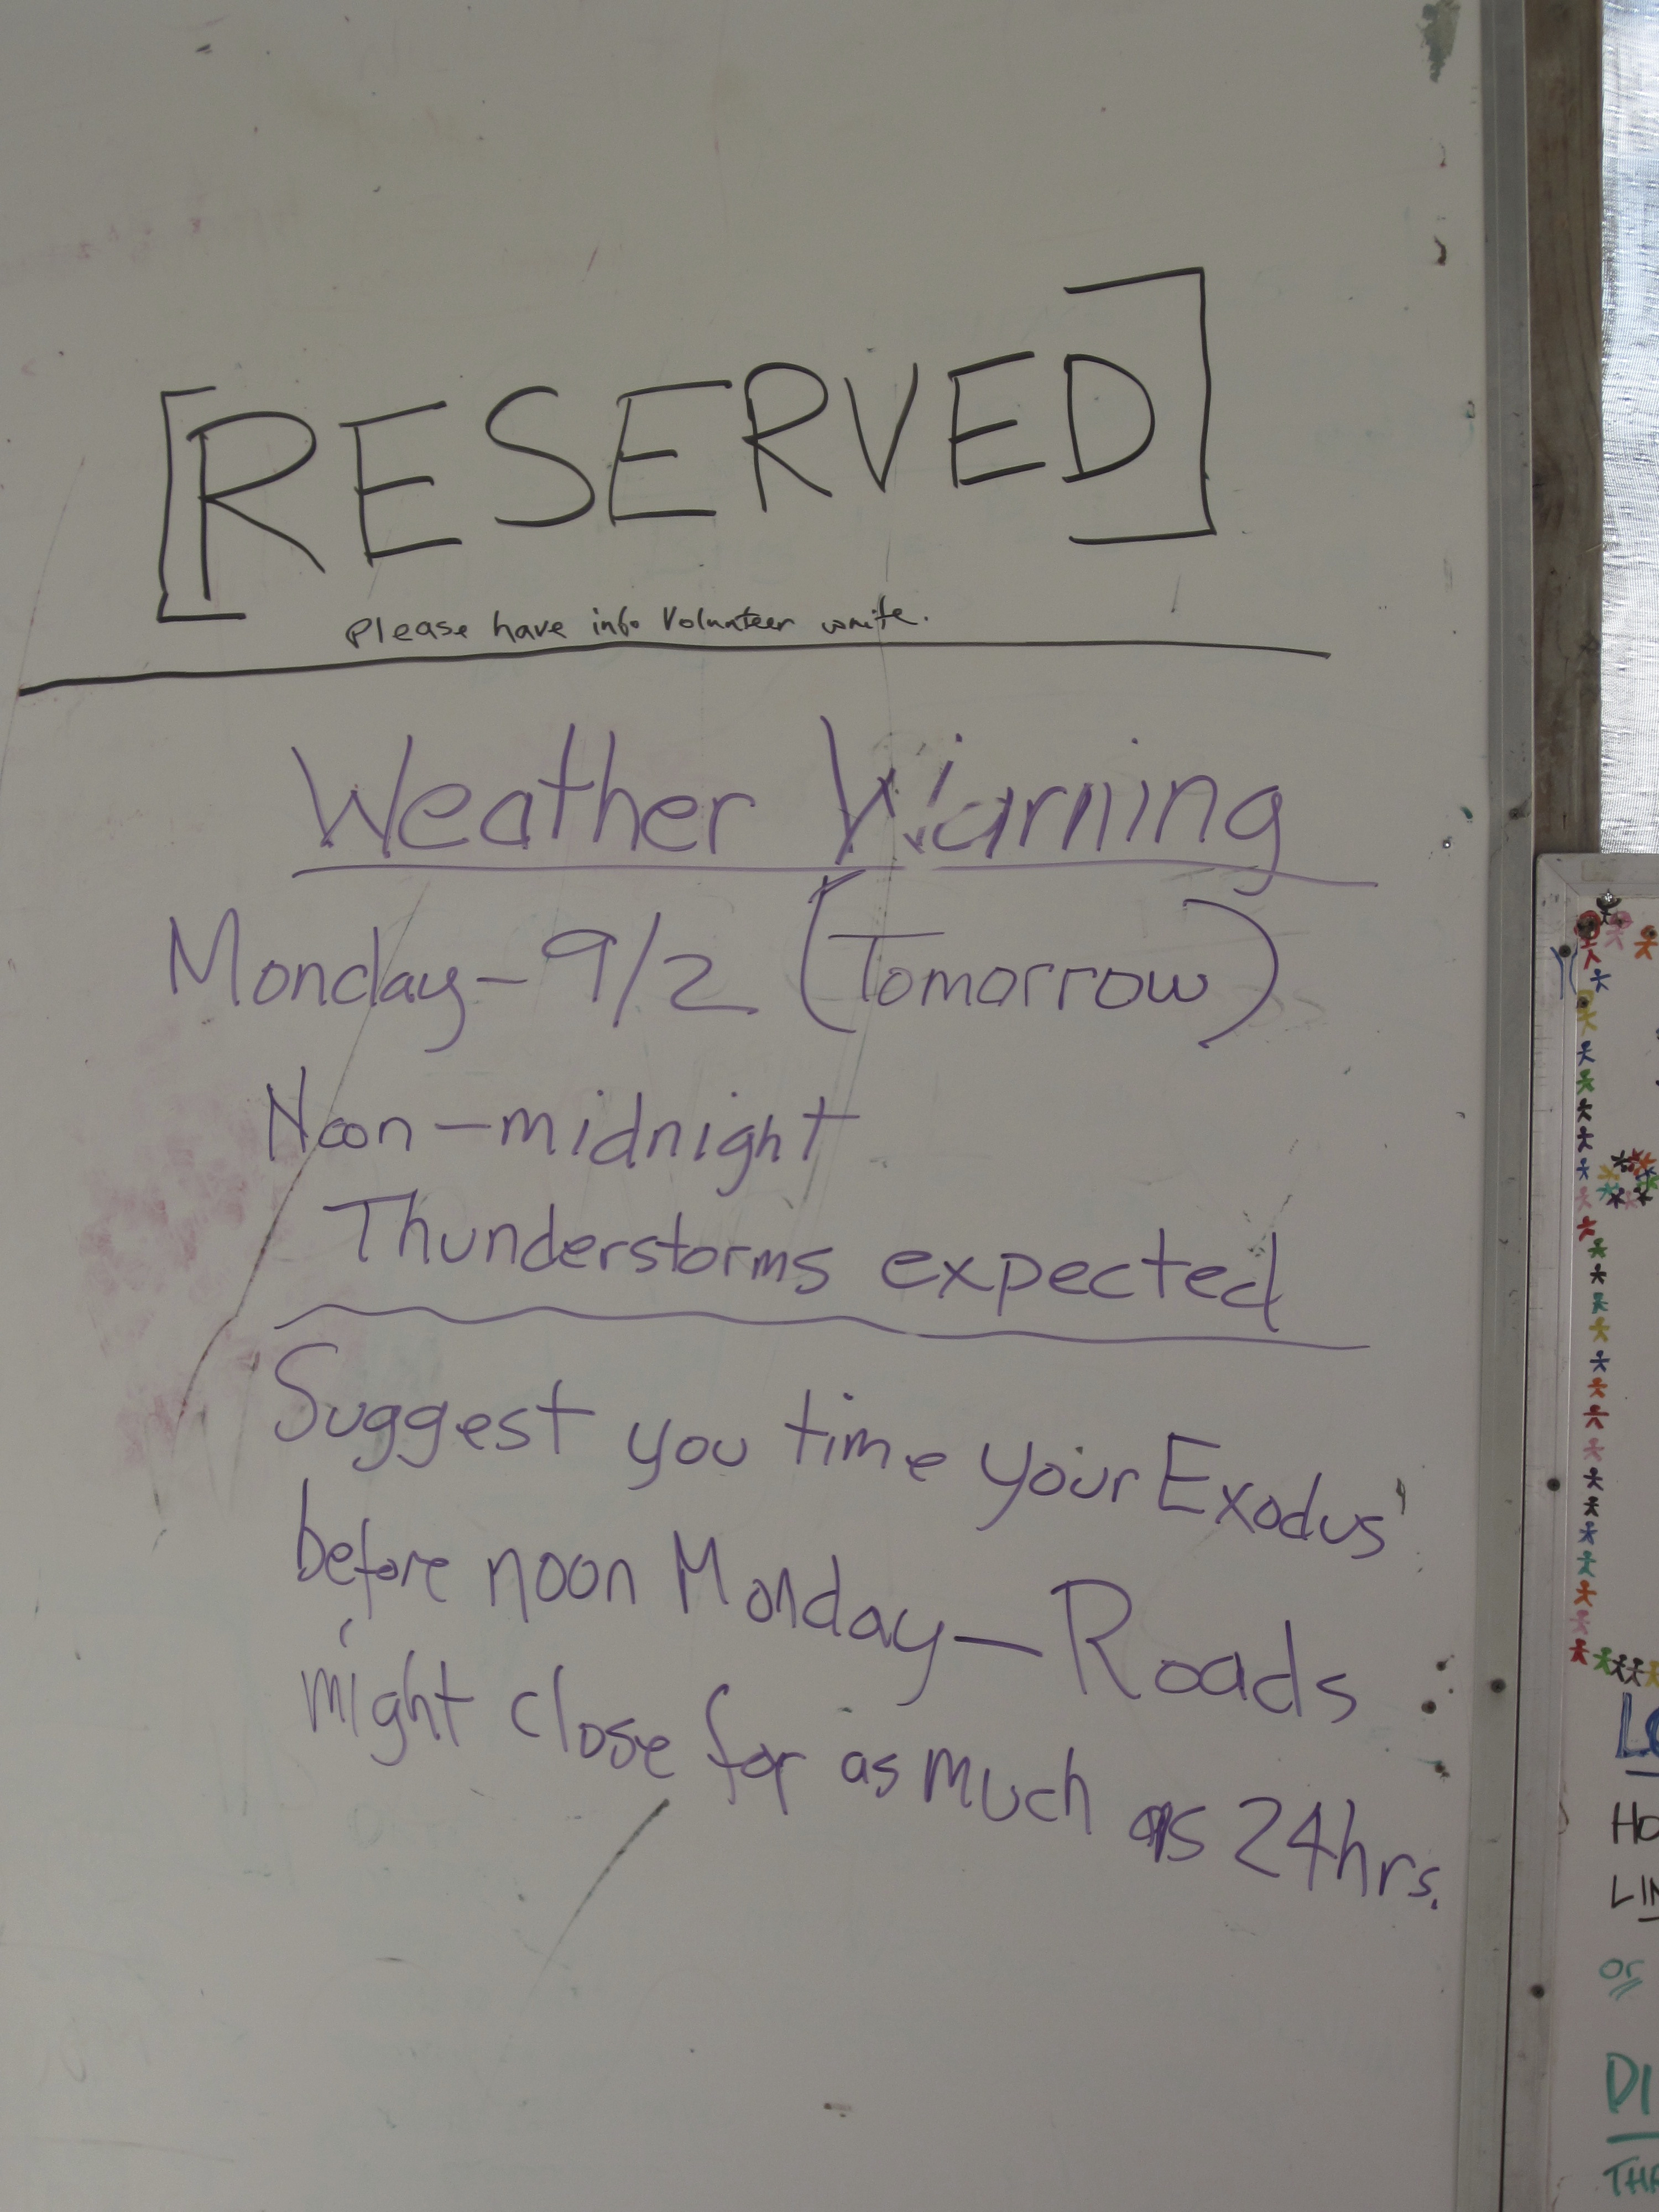 [RESERVED]
please have info Volunteer write.
Weather Warning
Monday - 9/2 (Tomorrow)
Noon - midnight
Thunderstorms expected
Suggest you time your Exodus
before noon Monday - Roads
might close for as much as 24hrs.
HO
LIN
or
DI
THA